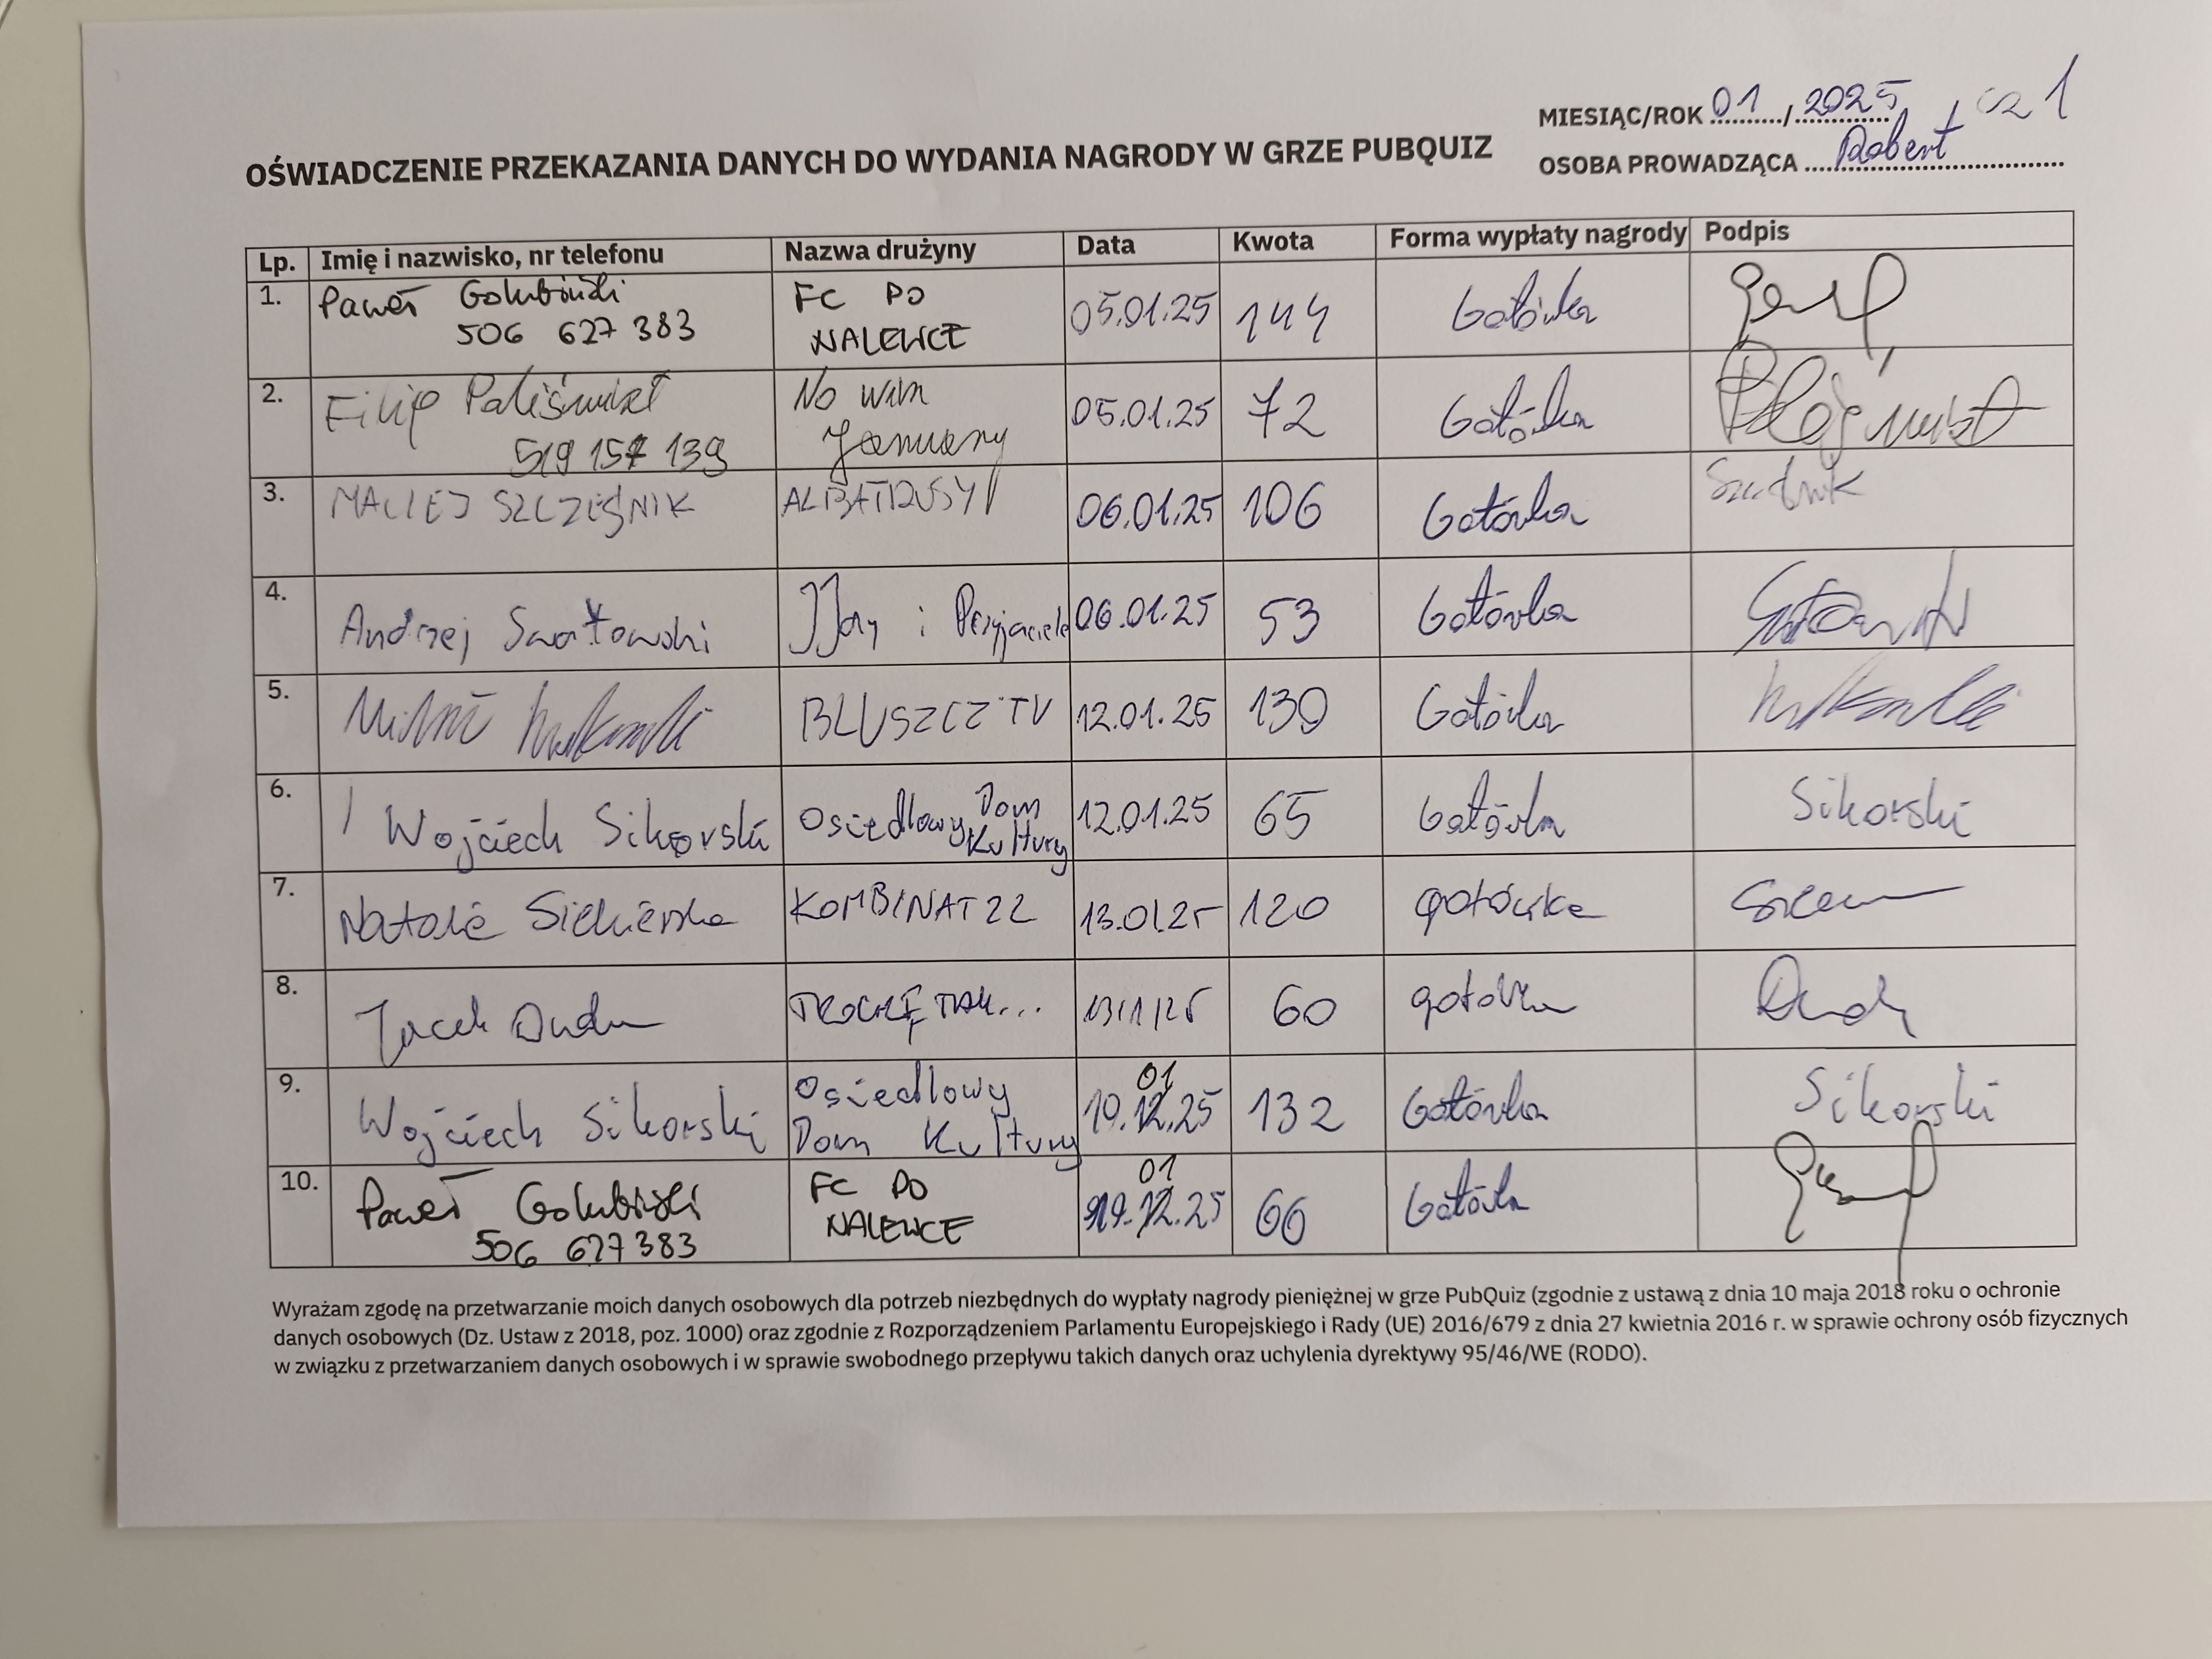 MIESIĄC/ROK 01/2025 cz 1
OŚWIADCZENIE PRZEKAZANIA DANYCH DO WYDANIA NAGRODY W GRZE PUBQUIZ
OSOBA PROWADZĄCA Robert
Lp. Imię i nazwisko, nr telefonu Nazwa drużyny Data Kwota Forma wypłaty nagrody Podpis
1. Paweł Gołubiński FC PO 05.01.25 144 Gotówka
506 627 383 NALEWCE
2. Filip No win 05.01.25 72 Gotówka
519 157 139 January
3. MACIEJ SZCZEŚNIK ALBATROSY 06.01.25 106 Gotówka
4. Andrzej Swatowski i Przyjaciele 06.01.25 53 Gotówka
5. BLUSZCZ TV 12.01.25 130 Gotówka
6. Wojciech Sikorski Osiedlowy Dom Kultury 12.01.25 65 Gotówka Sikorski
7. Natalia Siekierska KOMBINAT 22 13.01.25 120 gotówka
8. Jacek Duda TROCHĘ TAK... 13/1/25 60 gotówka
9. Wojciech Sikorski Osiedlowy 01 132 Gotówka Sikorski
Dom Kultury 19.12.25
10. Paweł Gołubiński FC PO 01 66 Gotówka
506 627 383 NALEWCE 19.12.25
Wyrażam zgodę na przetwarzanie moich danych osobowych dla potrzeb niezbędnych do wypłaty nagrody pieniężnej w grze PubQuiz (zgodnie z ustawą z dnia 10 maja 2018 roku o ochronie
danych osobowych (Dz. Ustaw z 2018, poz. 1000) oraz zgodnie z Rozporządzeniem Parlamentu Europejskiego i Rady (UE) 2016/679 z dnia 27 kwietnia 2016 r. w sprawie ochrony osób fizycznych
w związku z przetwarzaniem danych osobowych i w sprawie swobodnego przepływu takich danych oraz uchylenia dyrektywy 95/46/WE (RODO).